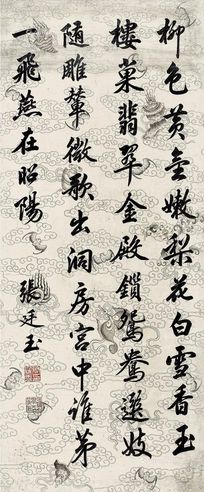 柳色黄金嫩梨花白雪香玉
楼巢翡翠金殿鎖鴛鴦選妓
随雕輦徵歌出洞房宮中誰第
一飛燕在昭陽
張廷玉